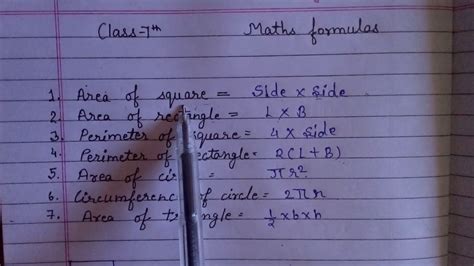 Class-7th Maths formulas
1. Area of square = Side x Side
2. Area of rectangle = L x B
3. Perimeter of square = 4 x Side
4. Perimeter of rectangle = 2(L+B)
5. Area of circle = πr²
6. Circumference of circle = 2πr
7. Area of triangle = 1/2 x b x h